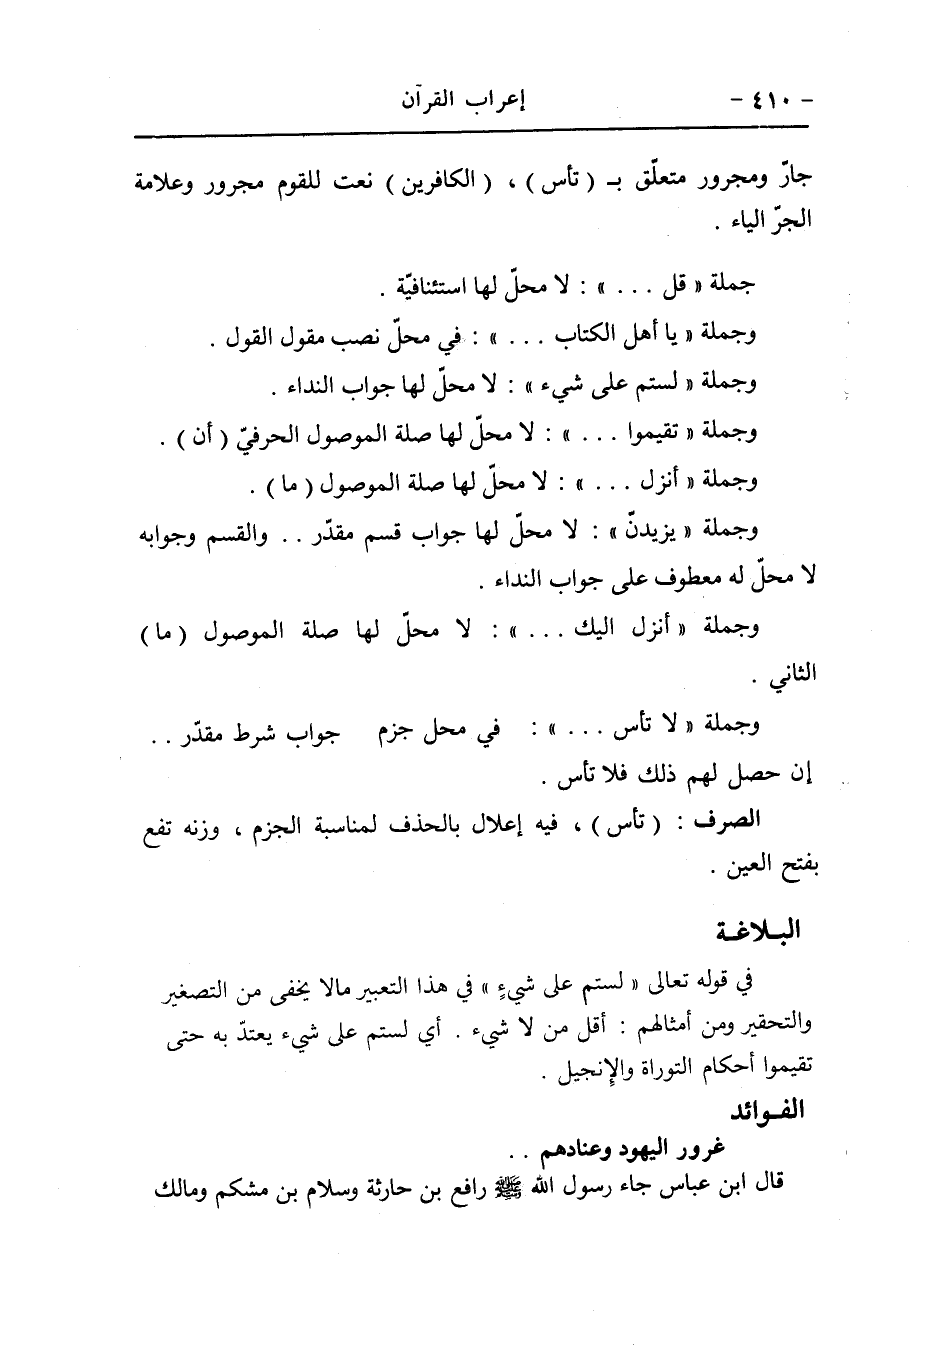 - ٤١٠ - إعراب القرآن
جارّ ومجرور متعلّق بـ ( تأس ) ، ( الكافرين ) نعت للقوم مجرور وعلامة
الجرّ الياء .
جملة « قل . . . » : لا محلّ لها استئنافيّة .
وجملة « يا أهل الكتاب . . . » : في محلّ نصب مقول القول .
وجملة « لستم على شيء » : لا محلّ لها جواب النداء .
وجملة « تقيموا . . . » : لا محلّ لها صلة الموصول الحرفيّ ( أن ) .
وجملة « أنزل . . . » : لا محلّ لها صلة الموصول ( ما ) .
وجملة « يزيدنّ » : لا محلّ لها جواب قسم مقدّر . . والقسم وجوابه
لا محلّ له معطوف على جواب النداء .
وجملة « أنزل اليك . . . » : لا محلّ لها صلة الموصول ( ما )
الثاني .
وجملة « لا تأس . . . » : في محل جزم جواب شرط مقدّر . .
إن حصل لهم ذلك فلا تأس .
الصرف : ( تأس ) ، فيه إعلال بالحذف لمناسبة الجزم ، وزنه تفع
بفتح العين .
البـلاغـة
في قوله تعالى « لستم على شيءٍ » في هذا التعبير مالا يخفى من التصغير
والتحقير ومن أمثالهم : أقل من لا شيء . أي لستم على شيء يعتدّ به حتى
تقيموا أحكام التوراة والإنجيل .
الفـوائد
غرور اليهود وعنادهم . .
قال ابن عباس جاء رسول الله ﷺ رافع بن حارثة وسلام بن مشكم ومالك